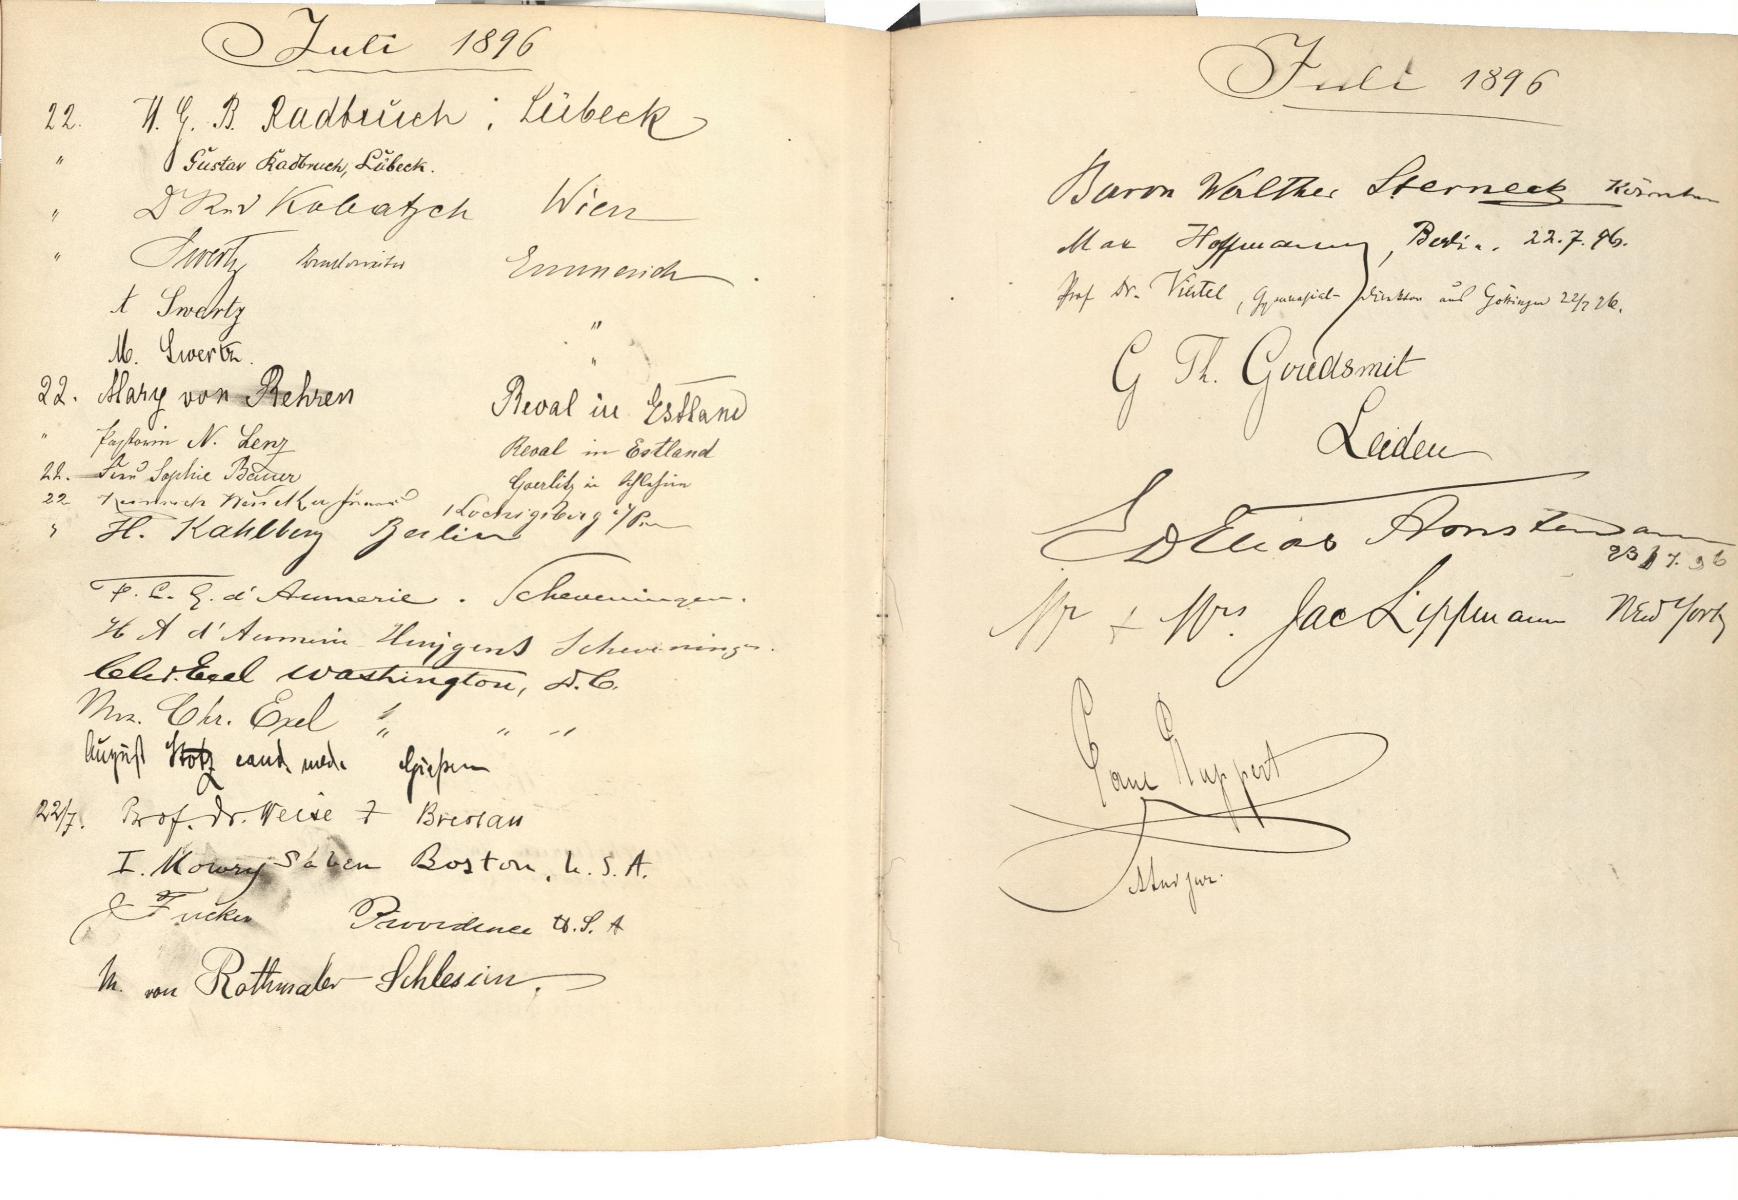 Juli 1896
22. H. G. B. Radbruch, Lübeck
" Gustav Radbruch, Lübeck.
" Dr Rud Kobatsch Wien
" Swertz Emmerich
A Swertz "
M. Swertz. "
22. Mary von Rehren Reval in Estland
" Pastorin N. Lenz Reval in Estland
22. Frau Sophie Bauer Goerlitz in Schlesien
22 Heinrich
" H. Kahlberg Berlin
F. C. G. d'Aumerie. Scheveningen.
H A d'Aumerie Huijgens Scheveningen.
Chr. Exel Washington, D.C.
Mrs. Chr. Exel " " "
August Stotz cand. med. Giessen
22/7. Prof. Dr. Weise Breslau
I. Mowry Saben Boston, U.S.A.
J Tucker Providence U.S.A
M. von Rothmaler Schlesien.
Juli 1896
Baron Walther Sterneck Kärnten
Max Hoffmann, Berlin. 22.7.96.
Prof Dr. Viertel, Gymnasial-Direktor aus Göttingen 22/7 96.
G Th. Goudsmit
Leiden
Elias Amsterdam
23/7.96
Mr + Mrs. Jac Lippmann New York
Paul Ruppert
stud jur.